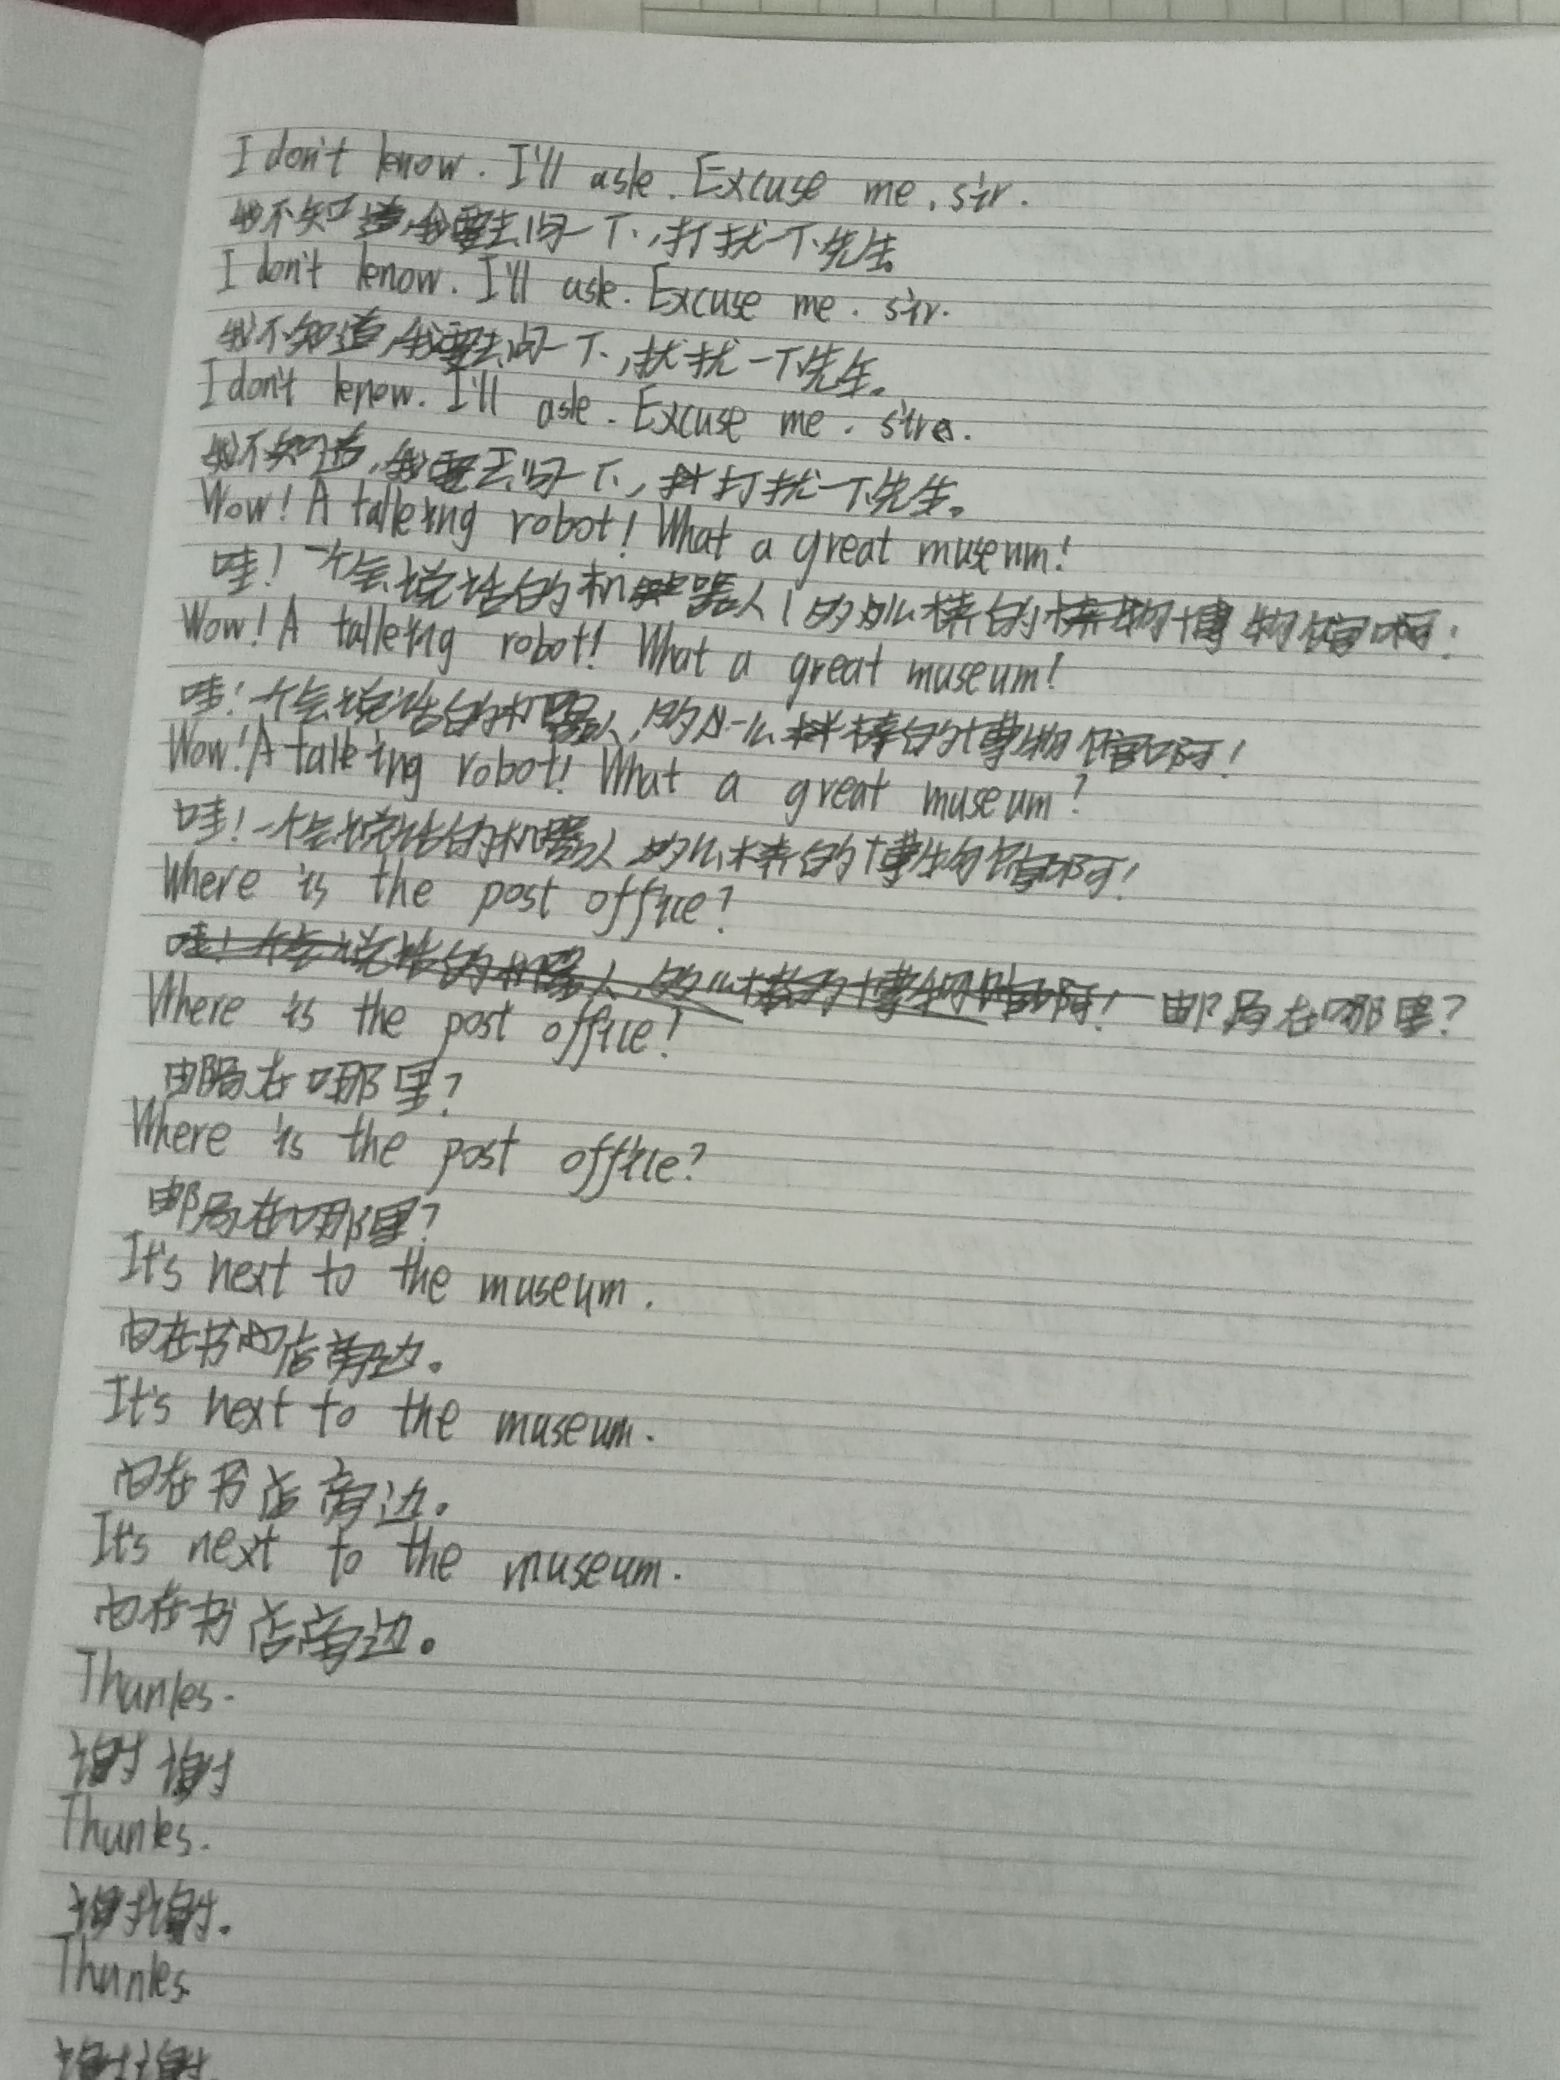 I don't know. I'll ask. Excuse me, sir.
我不知道,我要去问一下,打扰一下先生。
I don't know. I'll ask. Excuse me. sir.
我不知道,我要去问一下,扰扰一下先生。
I don't know. I'll ask. Excuse me. sir.
我不知道,我要去问一下,打扰一下先生。
Wow! A talking robot! What a great museum!
哇!一个会说话的机器人!的么棒的博物馆啊!
Wow! A talking robot! What a great museum!
哇!个会说话的机器人!的么棒的博物馆啊!
Wow! A talking robot! What a great museum?
哇!一个会说话的机器人,的么棒的博物馆啊!
Where is the post office?
邮局在哪里?
Where is the post office!
邮局在哪里?
Where is the post office?
邮局在哪里?
It's next to the museum.
在书店旁边。
It's next to the museum.
在书店旁边。
It's next to the museum.
在书店旁边。
Thanks.
谢谢
Thanks.
谢谢。
Thanks.
谢谢.